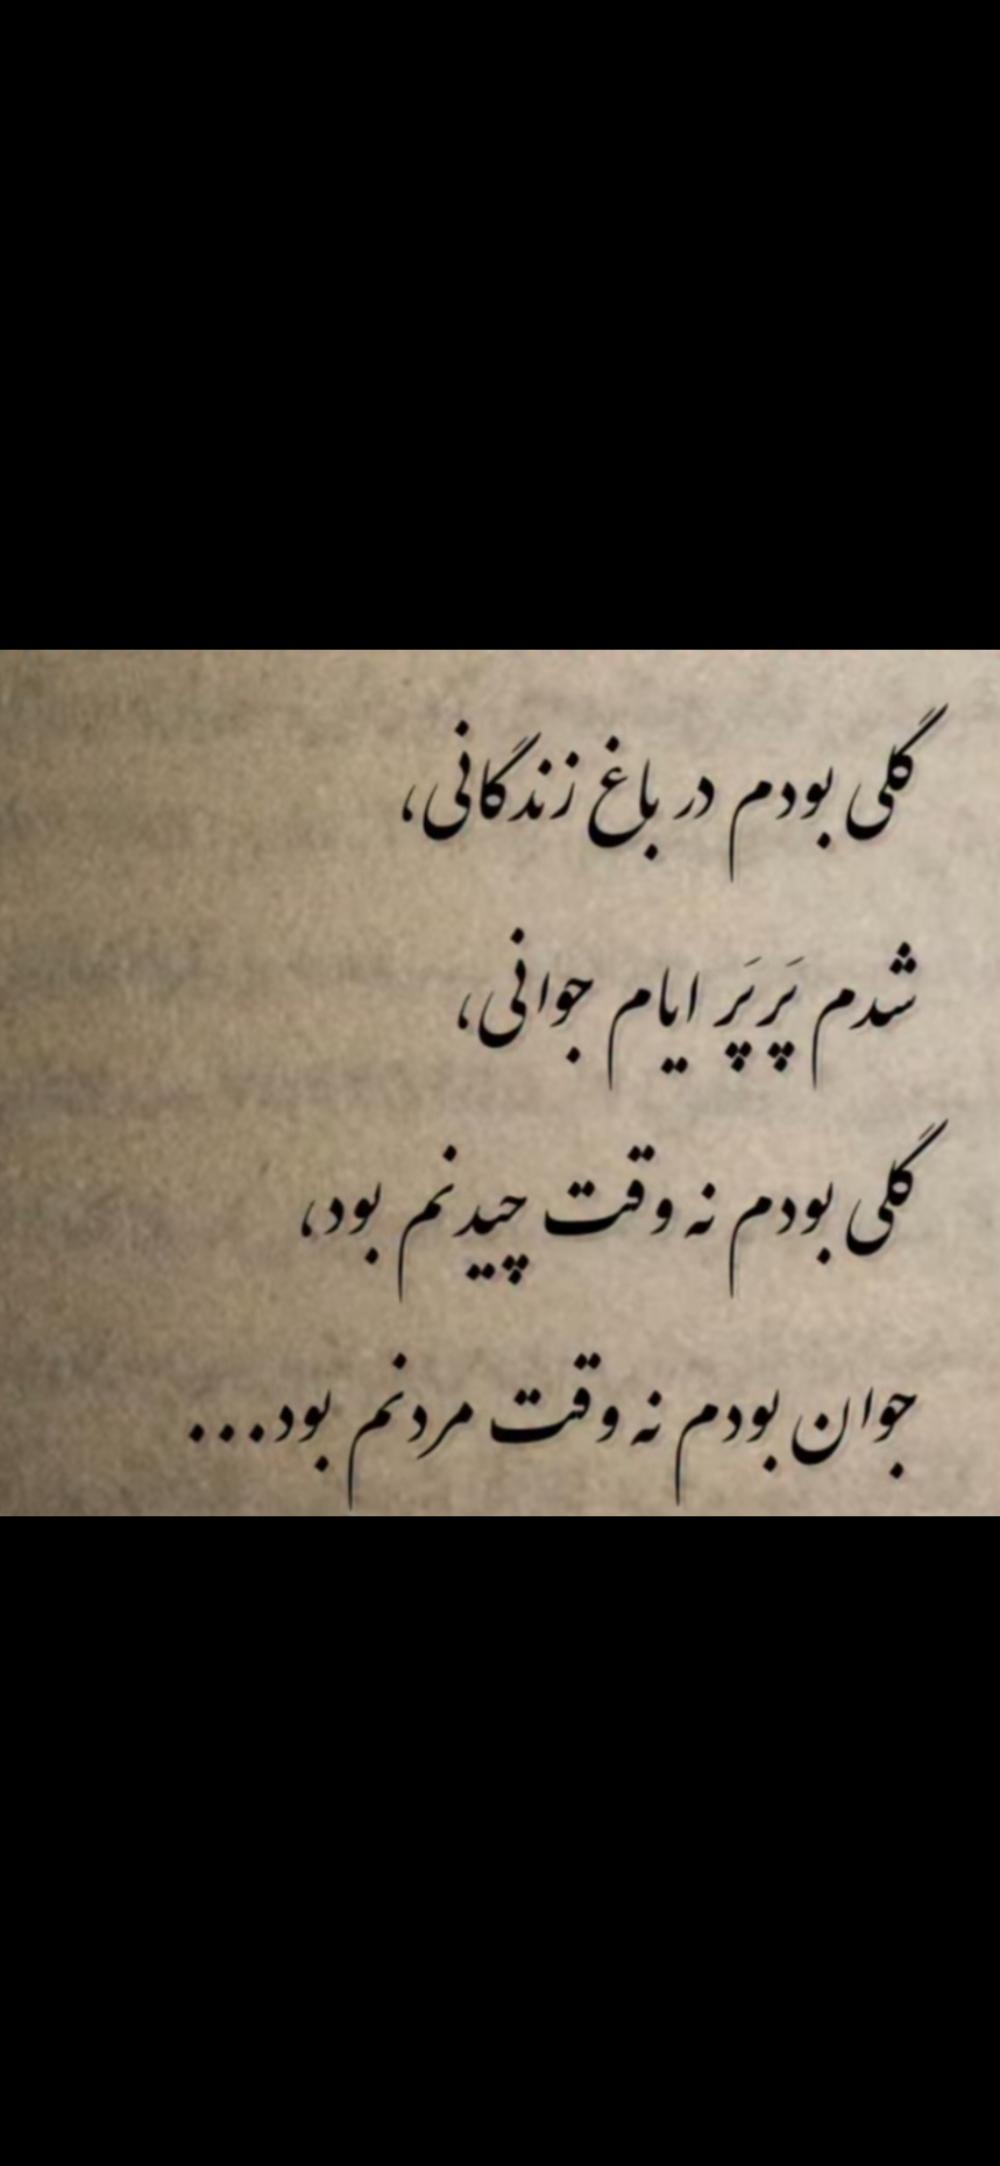 گلی بودم در باغ زندگانی،
شدم پَرپَر ایام جوانی،
گلی بودم نه وقت چیدنم بود،
جوان بودم نه وقت مردنم بود...